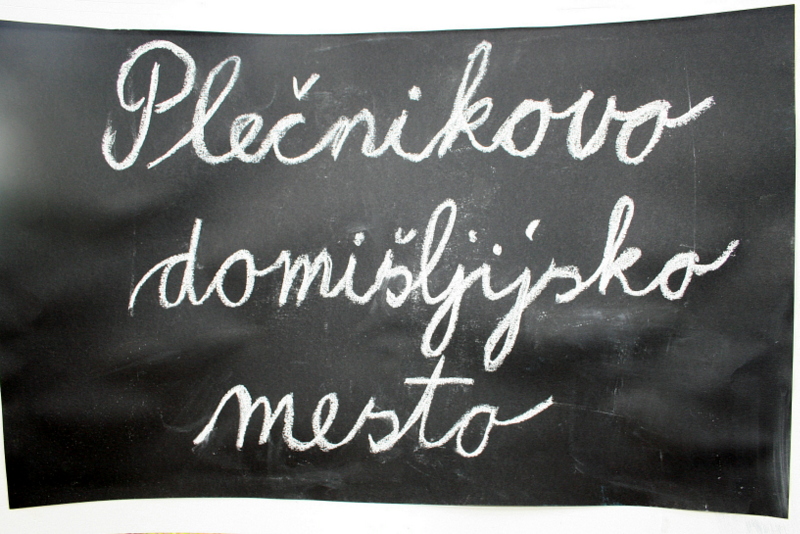 Plečnikovo
domišljijsko
mesto